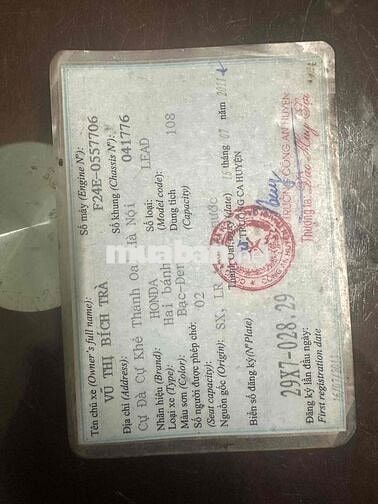 Tên chủ xe (Owner's full name):
VŨ THỊ BÍCH TRÀ
Địa chỉ (Address):
Cự Đà Cự Khê Thanh Oai Hà Nội
Nhãn hiệu (Brand): HONDA
Loại xe (Type): Hai bánh
Màu sơn (Color): Bạc-Đen
Số người được phép chở: 02
(Seat capacity)
Nguồn gốc (Origin): SX, LR
Biển số đăng ký (N°Plate)
29X7-028.29
Đăng ký lần đầu ngày:
First registration date
Số máy (Engine N°):
F24E-0557706
Số khung (Chassis N°):
041776
Số loại: LEAD
(Model code):
Dung tích 108
(Capacity)
Thanh Oai (date) 15 tháng 07 năm 2011
TRƯỞNG CA HUYỆN
mua